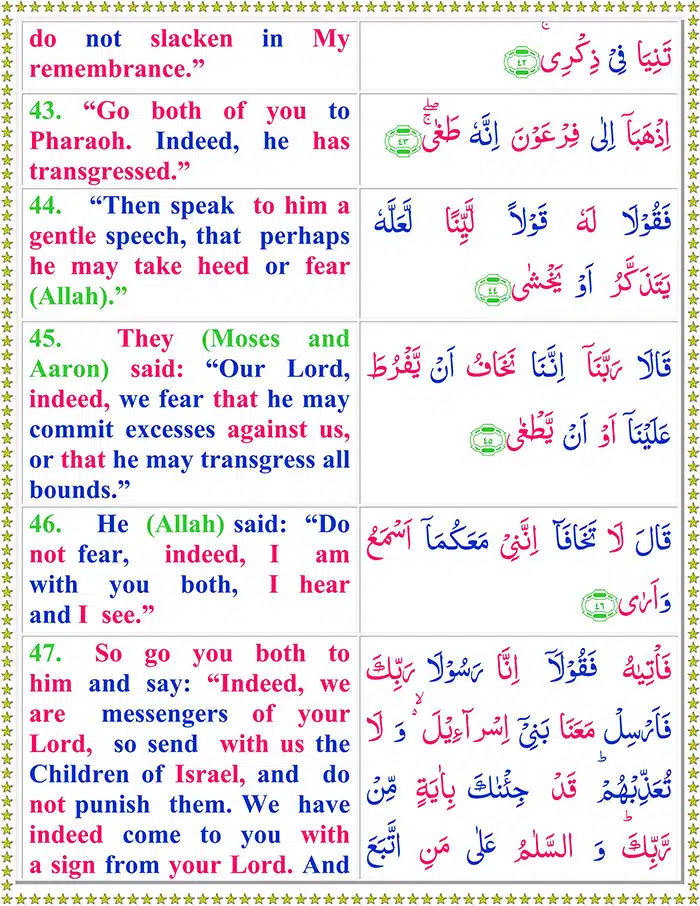 do not slacken in My
remembrance.”
تَنِيَا فِىْ ذِكْرِىۚ ﴿٤٢﴾
43. “Go both of you to
Pharaoh. Indeed, he has
transgressed.”
اِذْهَبَاۤ اِلٰى فِرْعَوْنَ اِنَّهٗ طَغٰى ۖۚ ﴿٤٣﴾
44. “Then speak to him a
gentle speech, that perhaps
he may take heed or fear
(Allah).”
فَقُوْلَا لَهٗ قَوْلًا لَّيِّنًا لَّعَلَّهٗ
يَتَذَكَّرُ اَوْ يَخْشٰى ﴿٤٤﴾
45. They (Moses and
Aaron) said: “Our Lord,
indeed, we fear that he may
commit excesses against us,
or that he may transgress all
bounds.”
قَالَا رَبَّنَاۤ اِنَّنَا نَخَافُ اَنْ يَّفْرُطَ
عَلَيْنَاۤ اَوْ اَنْ يَّطْغٰى ﴿٤٥﴾
46. He (Allah) said: “Do
not fear, indeed, I am
with you both, I hear
and I see.”
قَالَ لَا تَخَافَاۤ اِنَّنِىْ مَعَكُمَاۤ اَسْمَعُ
وَاَرٰى ﴿٤٦﴾
47. So go you both to
him and say: “Indeed, we
are messengers of your
Lord, so send with us the
Children of Israel, and do
not punish them. We have
indeed come to you with
a sign from your Lord. And
فَاْتِيٰهُ فَقُوْلَاۤ اِنَّا رَسُوْلَا رَبِّكَ
فَاَرْسِلْ مَعَنَا بَنِىْۤ اِسْرَآءِيْلَ ۙ وَ لَا
تُعَذِّبْهُمْ ؕ قَدْ جِئْنٰكَ بِاٰيَةٍ مِّنْ
رَّبِّكَ ؕ وَ السَّلٰمُ عَلٰى مَنِ اتَّبَعَ